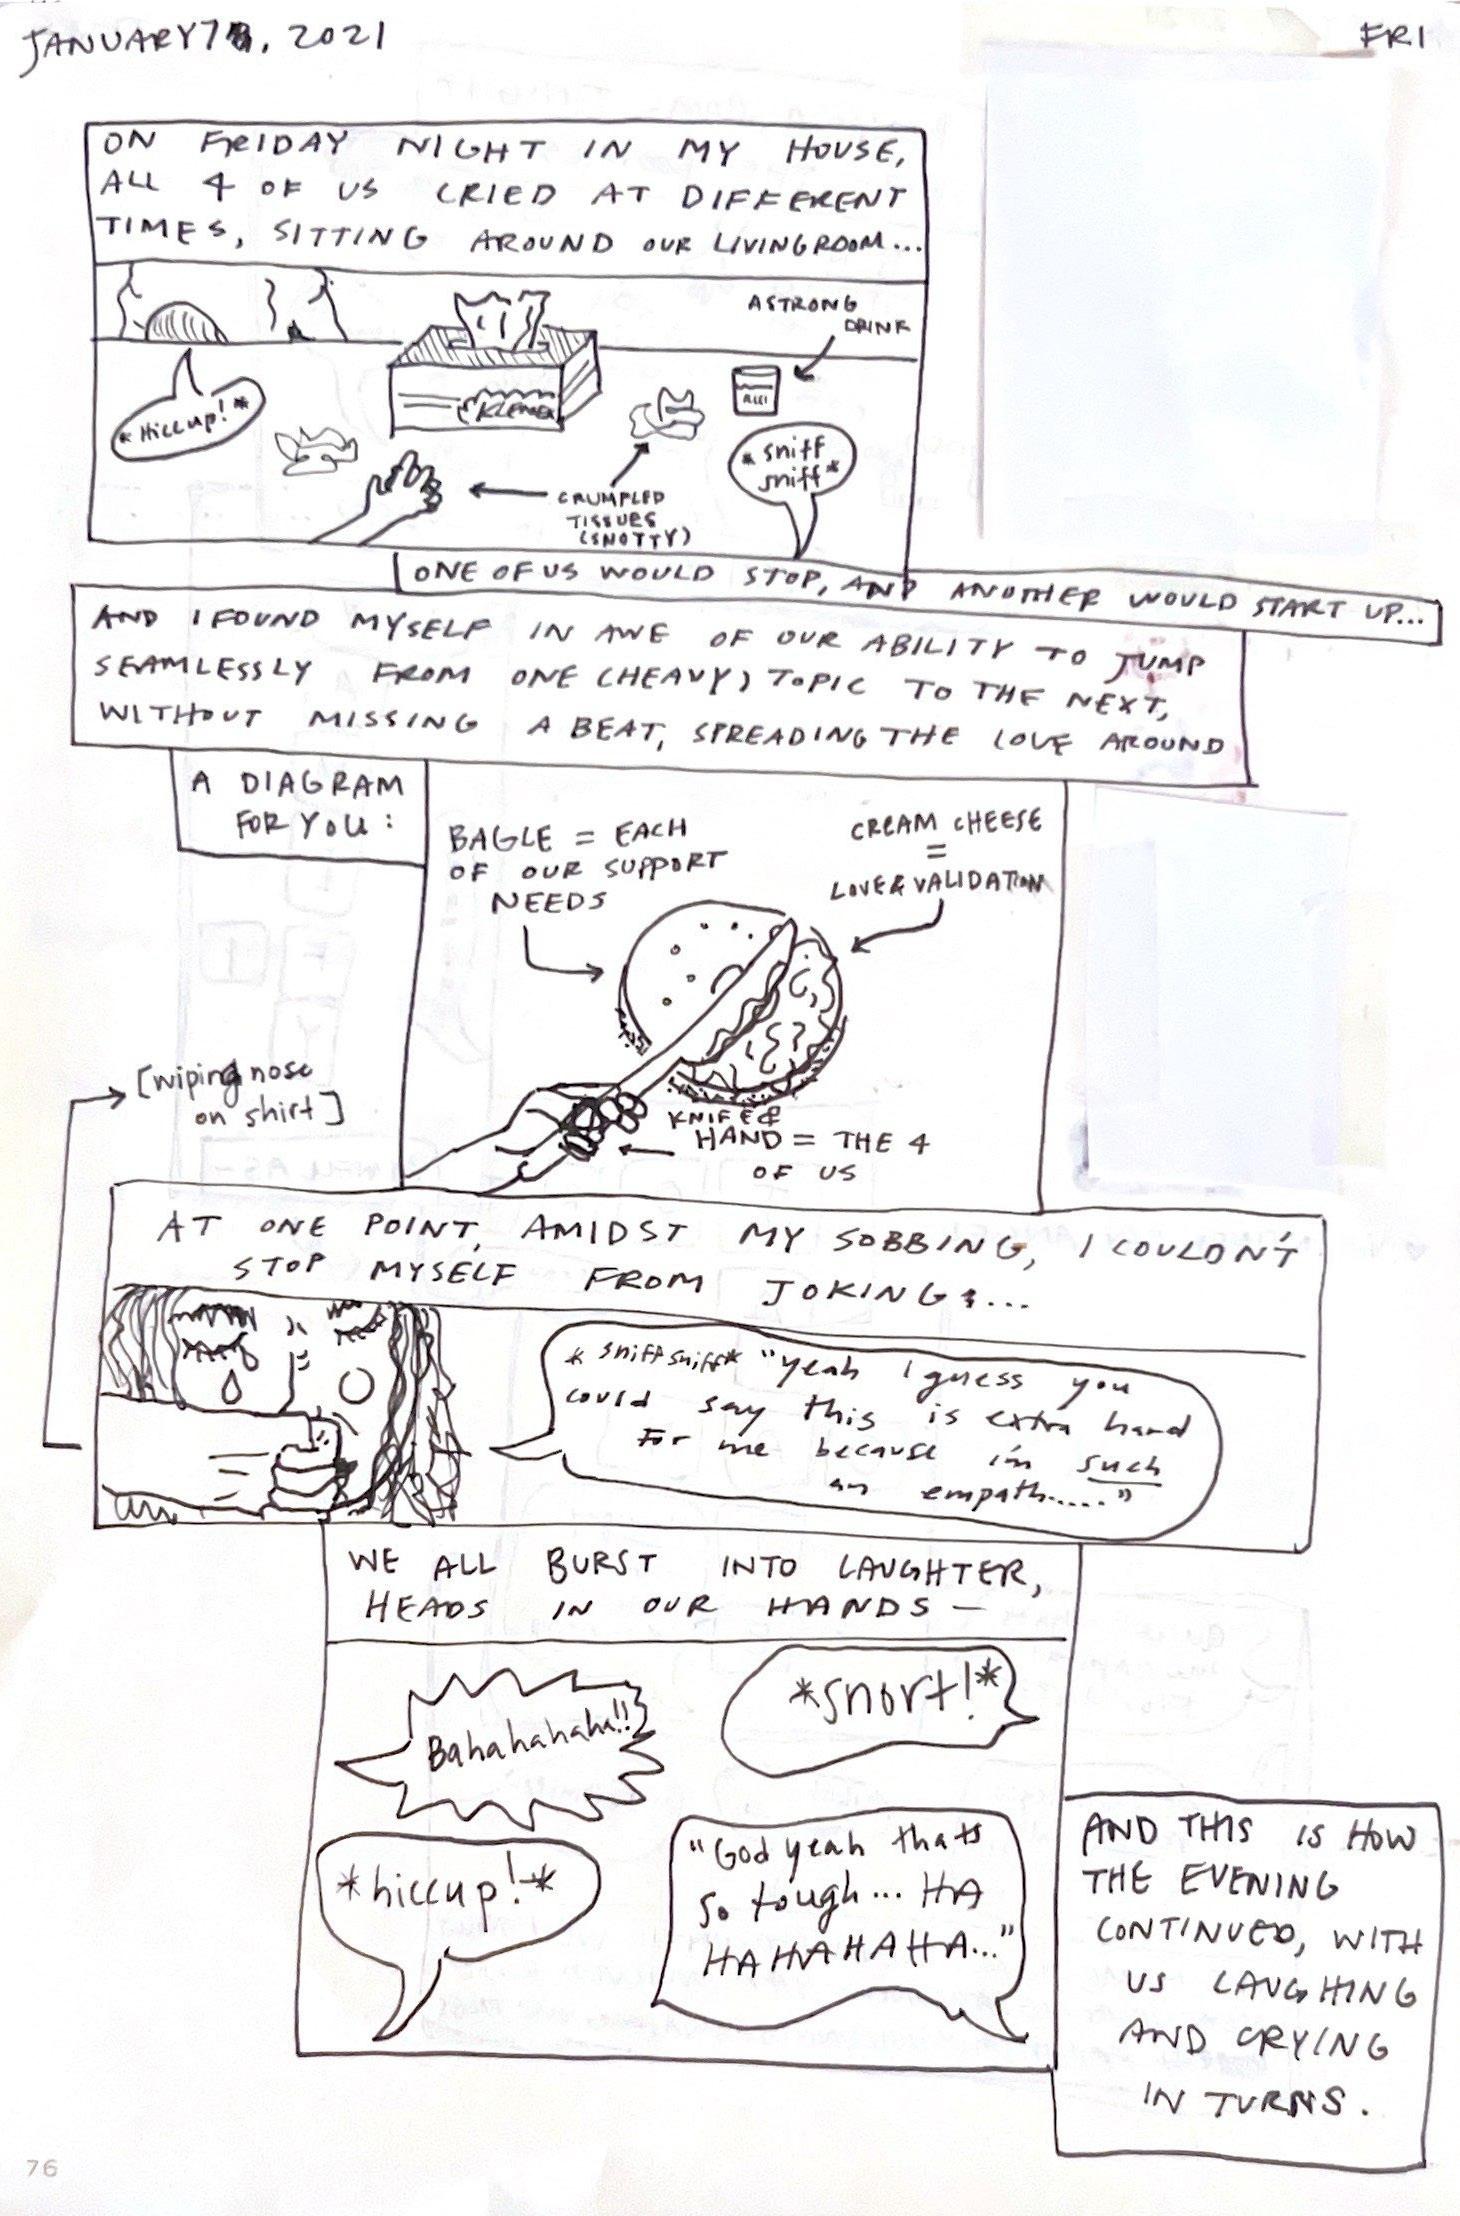 JANUARY 78, 2021
FRI
ON FRIDAY NIGHT IN MY HOUSE,
ALL 4 OF US CRIED AT DIFFERENT
TIMES, SITTING AROUND OUR LIVINGROOM...
A STRONG
DRINK
*Hiccup!*
KLEENEX
*sniff
sniff*
CRUMPLED
TISSUES
(SNOTTY)
ONE OF US WOULD STOP, AND ANOTHER WOULD START UP...
AND I FOUND MYSELF IN AWE OF OUR ABILITY TO JUMP
SEAMLESSLY FROM ONE (HEAVY) TOPIC TO THE NEXT,
WITHOUT MISSING A BEAT, SPREADING THE LOVE AROUND
A DIAGRAM
FOR YOU:
BAGLE = EACH
OF OUR SUPPORT
NEEDS
CREAM CHEESE
=
LOVE & VALIDATION
KNIFE &
HAND = THE 4
OF US
[wiping nose
on shirt]
AT ONE POINT, AMIDST MY SOBBING, I COULDN'T
STOP MYSELF FROM JOKING:...
*sniff sniff* "yeah I guess you
could say this is extra hard
For me because i'm such
an empath....."
WE ALL BURST INTO LAUGHTER,
HEADS IN OUR HANDS —
Bahahahaha!!
*snort!*
*hiccup!*
"God yeah thats
so tough... HA
HAHAHAHA..."
AND THIS IS HOW
THE EVENING
CONTINUED, WITH
US LAUGHING
AND CRYING
IN TURNS.
76